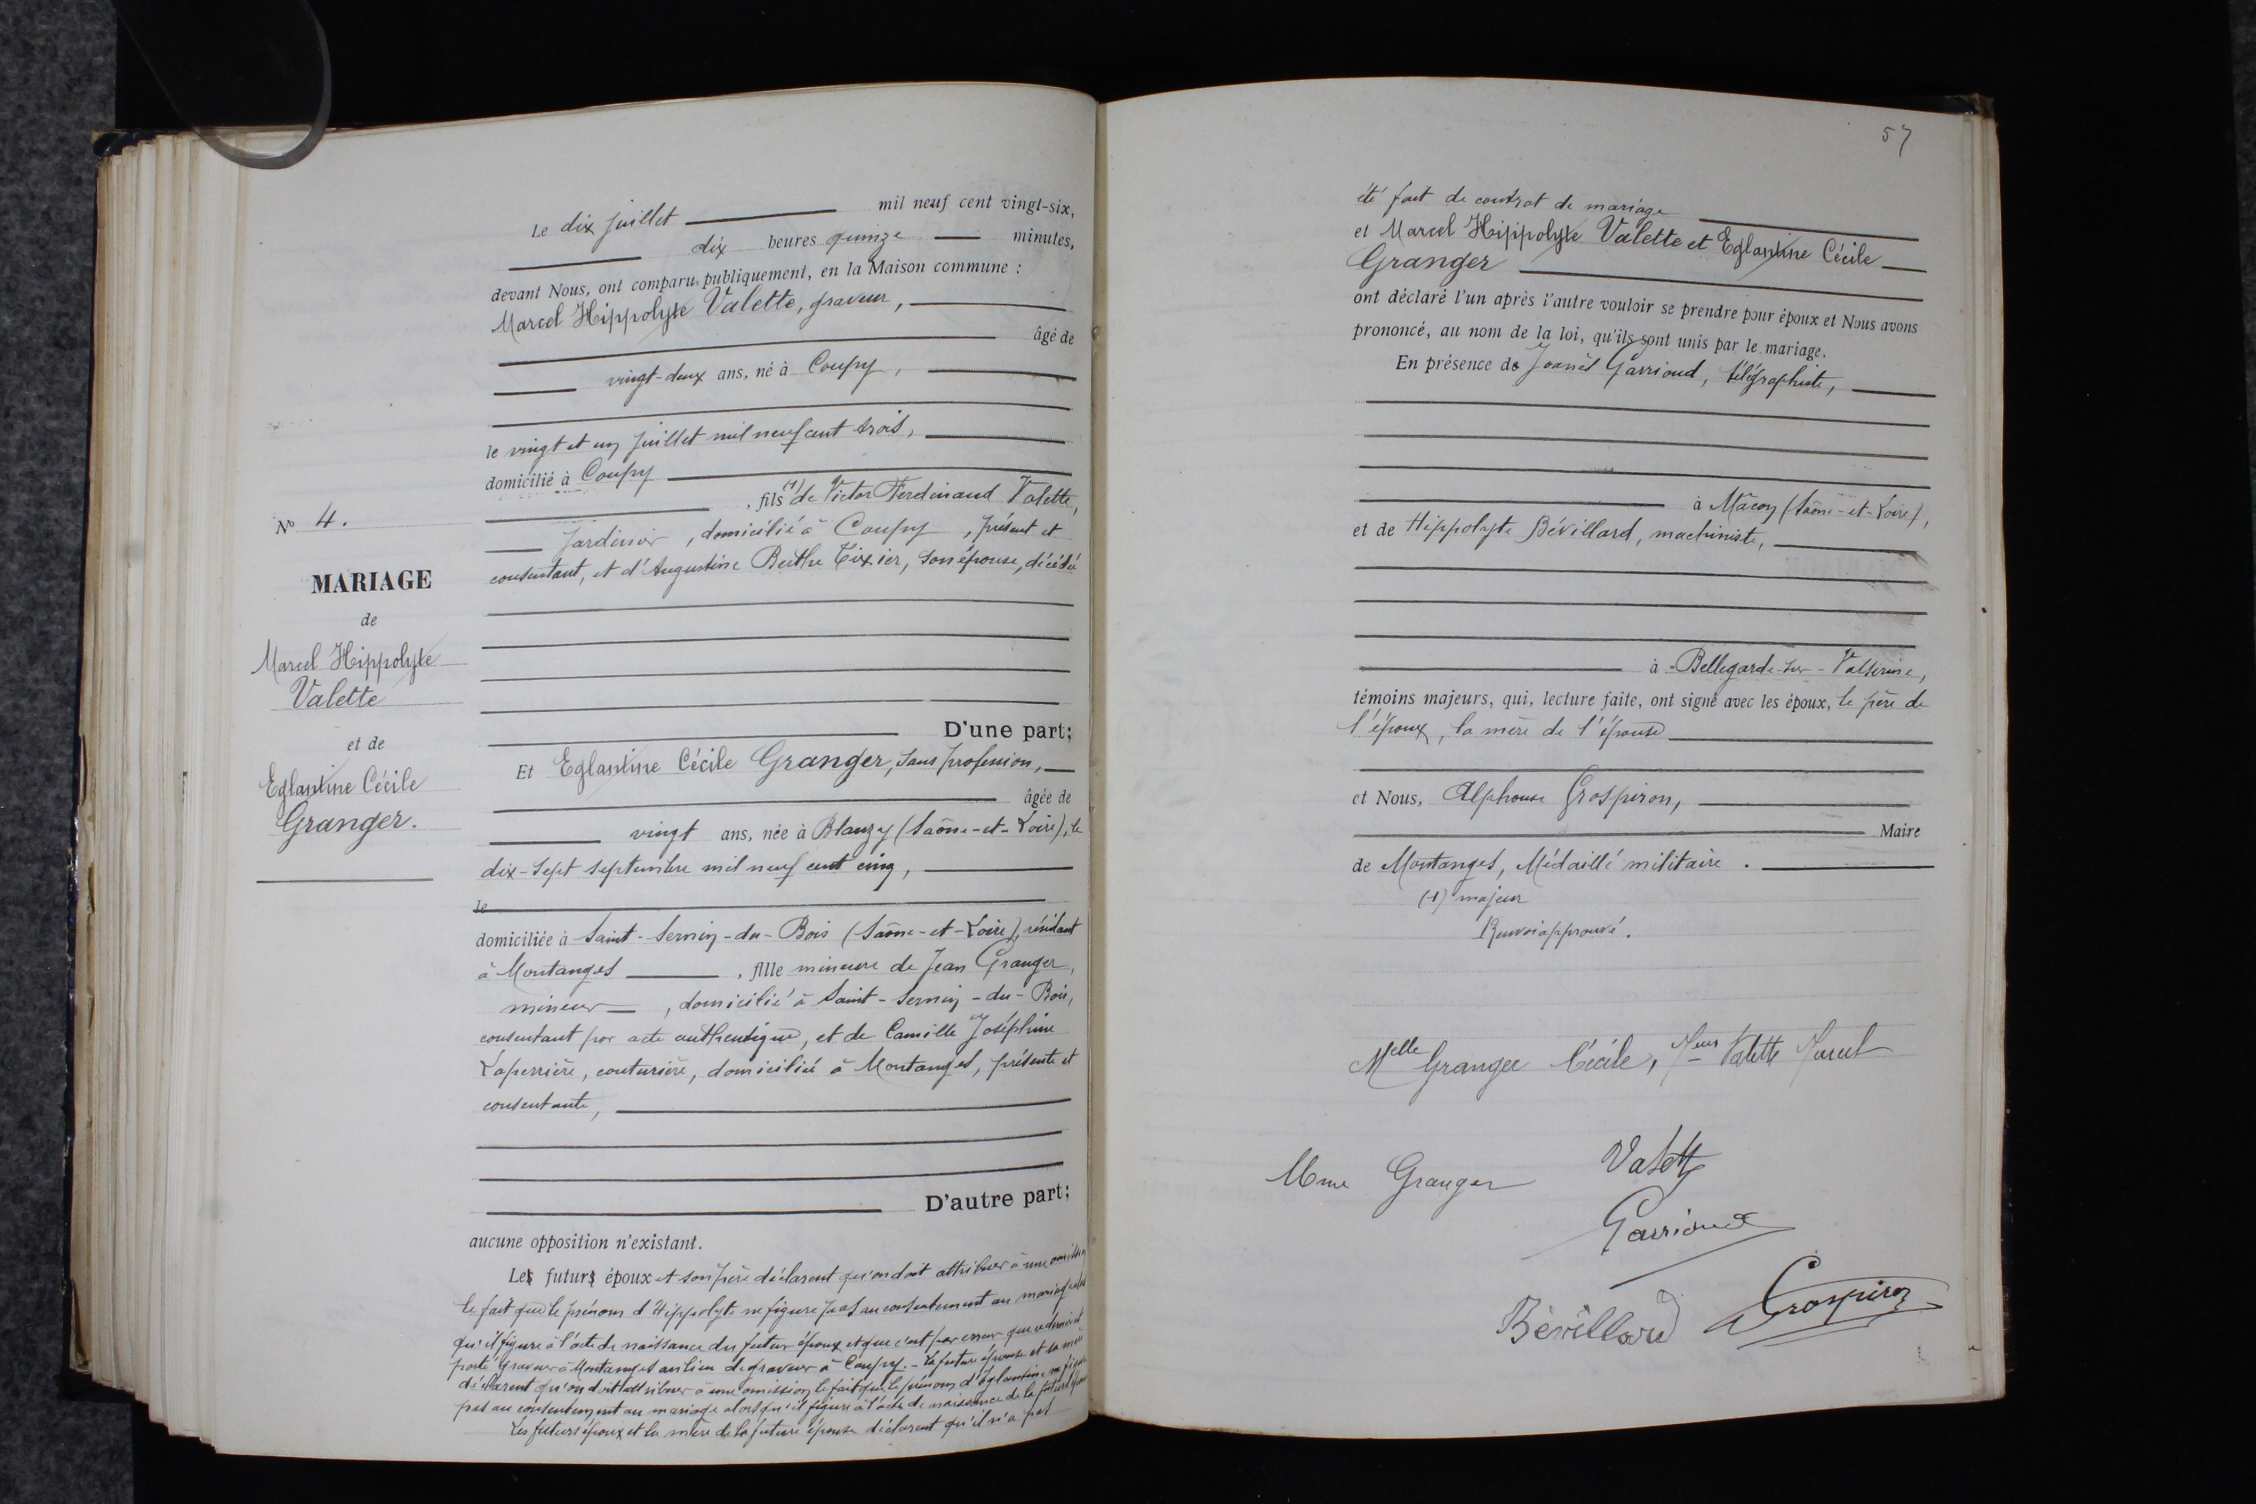 Le dix juillet mil neuf cent vingt-six,
dix heures quinze minutes,
devant Nous, ont comparu publiquement, en la Maison commune :
Marcel Hippolyte Valette, graveur,
âgé de
vingt-deux ans, né à Coupy,
le vingt et un juillet mil neuf cent trois,
domicilié à Coupy
, fils (1) de Victor Ferdinand Valette,
jardinier, domicilié à Coupy, présent et
consentant, et d'Augustine Berthe Tixier, son épouse, décédée
No 4.
MARIAGE
de
Marcel Hippolyte
Valette
et de
Eglantine Cécile
Granger.
D'une part;
Et Eglantine Cécile Granger, sans profession,
âgée de
vingt ans, née à Blanzy (Saône-et-Loire), le
dix-sept septembre mil neuf cent cinq,
le
domiciliée à Saint-Sernin-du-Bois (Saône-et-Loire), résidant
à Montanges, fille mineure de Jean Granger,
mineur, domicilié à Saint-Sernin-du-Bois,
consentant par acte authentique, et de Camille Joséphine
Laperrière, couturière, domiciliée à Montanges, présente et
consentante,
D'autre part;
aucune opposition n'existant.
Les futurs époux et son père déclarent qu'on doit attribuer à une omission
le fait que le prénom d'Hippolyte ne figure pas au consentement au mariage alors
qu'il figure à l'acte de naissance du futur époux et que c'est par erreur que ce dernier est
porté graveur à Montanges au lieu de graveur à Coupy. - La future épouse et sa mère
déclarent qu'on doit attribuer à une omission le fait que le prénom d'Eglantine ne figure
pas au consentement au mariage alors qu'il figure à l'acte de naissance de la future épouse
Les futurs époux et la mère de la future épouse déclarent qu'il n'a pas
57
été fait de contrat de mariage
et Marcel Hippolyte Valette et Eglantine Cécile
Granger
ont déclaré l'un après l'autre vouloir se prendre pour époux et Nous avons
prononcé, au nom de la loi, qu'ils sont unis par le mariage.
En présence de Joanès Garrioud, télégraphiste,
à Mâcon (Saône-et-Loire),
et de Hippolyte Bévillard, machiniste,
à Bellegarde-sur-Valserine,
témoins majeurs, qui, lecture faite, ont signé avec les époux, le père de
l'époux, la mère de l'épouse
et Nous, Alphonse Grospiron,
Maire
de Montanges, Médaillé militaire.
(1) majeur
Renvoi approuvé.
Melle Granger Cécile, Valette Marcel
Mme Granger Valette
Garrioud
Bévillard Grospiron